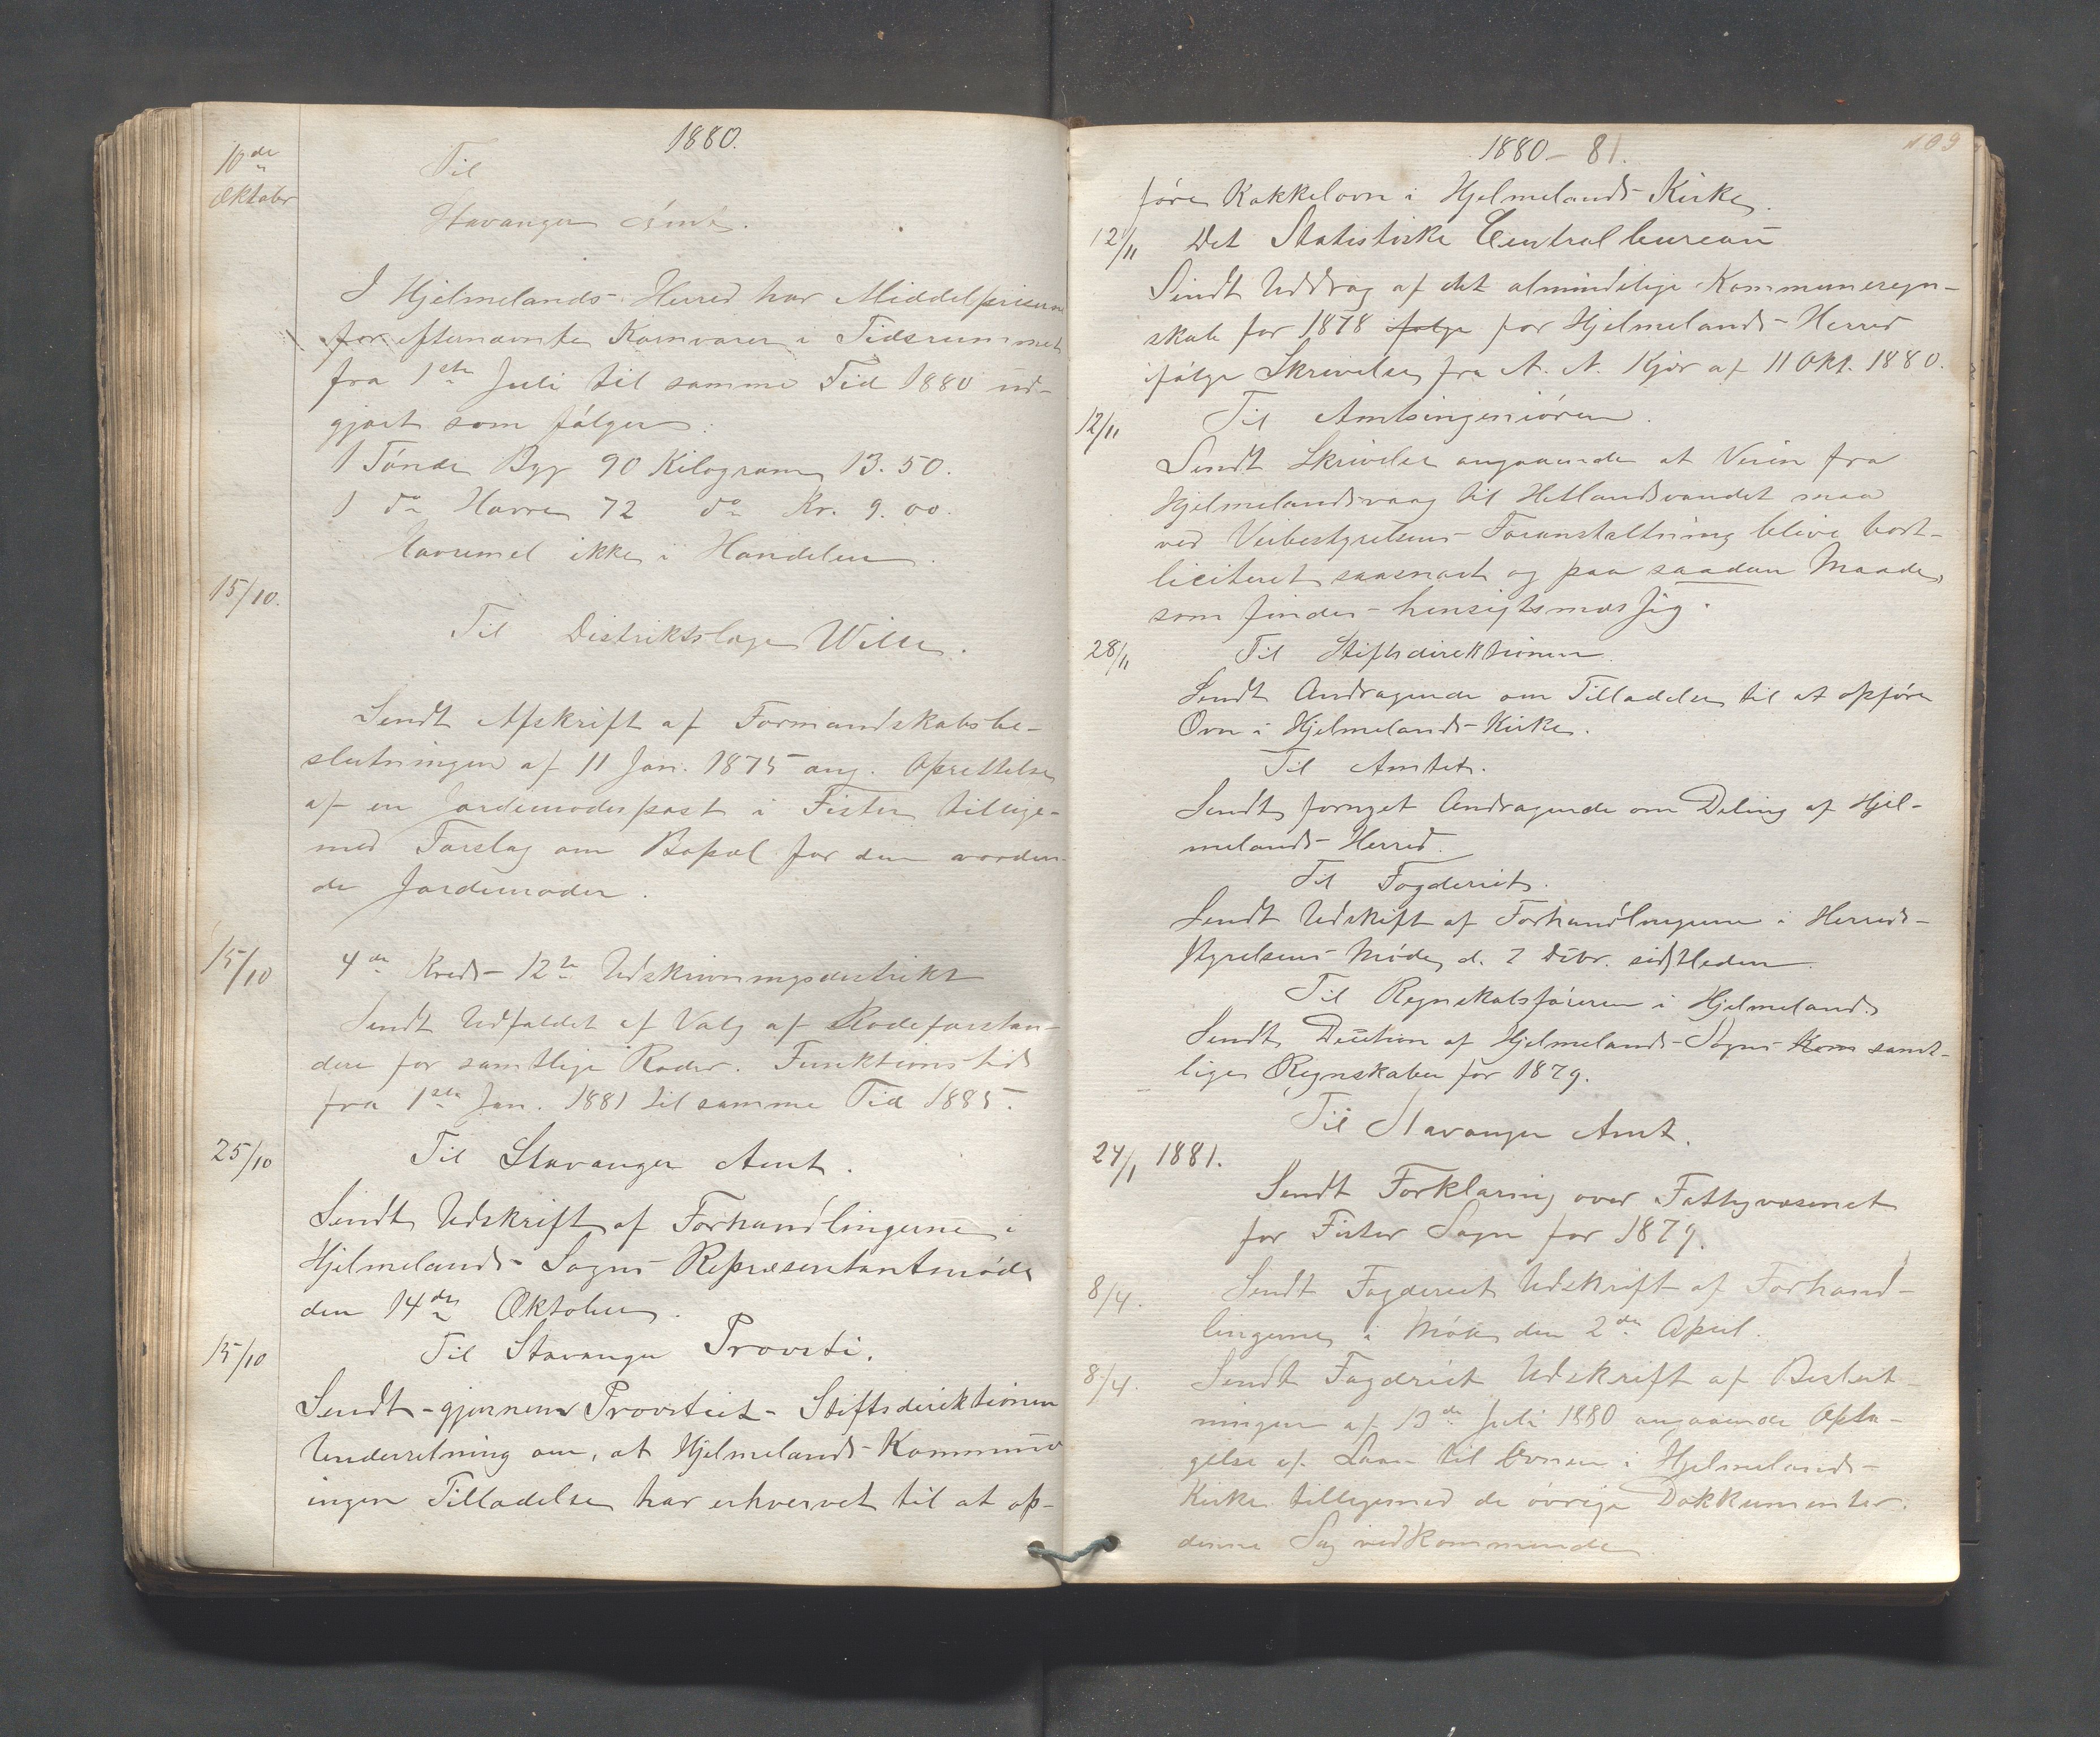 1880.
10de
Oktober
Til
Stavanger Amt.
I Hjelmelands Herred har Middelpriserne
for efternævnte Kornvarer i Tidsrummet
fra 1ste Juli til samme Tid 1880 ud-
gjort som følger:
1 Tønde Byg 90 Kilogram 13.50.
1 do Havre 72 do Kr. 9.00.
Havremel ikke i Handelen.
15/10.
Til Distriktslæge Wille.
Sendt Afskrift af Formandskabsbe-
slutningen af 11 Jan. 1875 ang. Oprettelse
af en Jordemoderpost i Fister tillige-
med Forslag om Bopæl for den vorden-
de Jordemoder.
15/10
4de Kreds - 12te Udskrivningsdistrikt
Sendt Udfaldet af Valg af Rodeforstan-
dere for samtlige Roder. Funktionstid
fra 1ste Jan. 1881 til samme Tid 1885.
25/10
Til Stavanger Amt.
Sendt Udskrift af Forhandlingerne i
Hjelmelands Sogns Repræsentantmøde
den 14de Oktober.
15/10
Til Stavanger Provsti.
Sendt gjennem Provstiet Stiftsdirektionen
Underretning om, at Hjelmelands Kommune
ingen Tilladelse har erhvervet til at op-
1880 - 81.
109
føre Kakkelovn i Hjelmelands Kirke.
12/11 Det Statistiske Centralbureau
Sendt Uddrag af det almindelige Kommuneregn-
skab for 1878 ifølge for Hjelmelands Herred
ifølge Skrivelse fra A. N. Kjær af 11 Okt. 1880.
12/11 Til Amtsingeniøren.
Sendt Skrivelse angaaende at Veien fra
Hjelmelandsvaag til Hetlandsvandet maa
ved Veibestyrelsens Foranstaltning blive bort-
liciteret saasnart og paa saadan Maade,
som findes hensigtsmæssig.
28/11 Til Stiftsdirektionen.
Sendt Andragende om Tilladelse til at opføre
Ovn i Hjelmelands Kirke.
Til Amtet.
Sendt fornyet Andragende om Deling af Hjel-
melands Herred.
Til Fogderiet.
Sendt Udskift af Forhandlingerne i Herreds-
styrelsens Møde d. 7 Dcbr. sidstleden.
Til Regnskabsføreren i Hjelmeland.
Sendt Decition af Hjelmelands Sogns Kom samt-
lige Regnskaber for 1879.
Til Stavanger Amt.
24/1 1881.
Sendt Forklaring over Fattigvæsenet
for Fister Sogn for 1879.
8/4. Sendt Fogderiet Udskrift af Forhand-
lingerne i Møde den 2de April.
8/4. Sendt Fogderiet Udskrift af Beslut-
ningen af 13de Juli 1880 angaaende Opta-
gelse af Laan til Ovnen i Hjelmelands
Kirke tilligemed de øvrige Dokkumenter
denne Sag vedkommende.